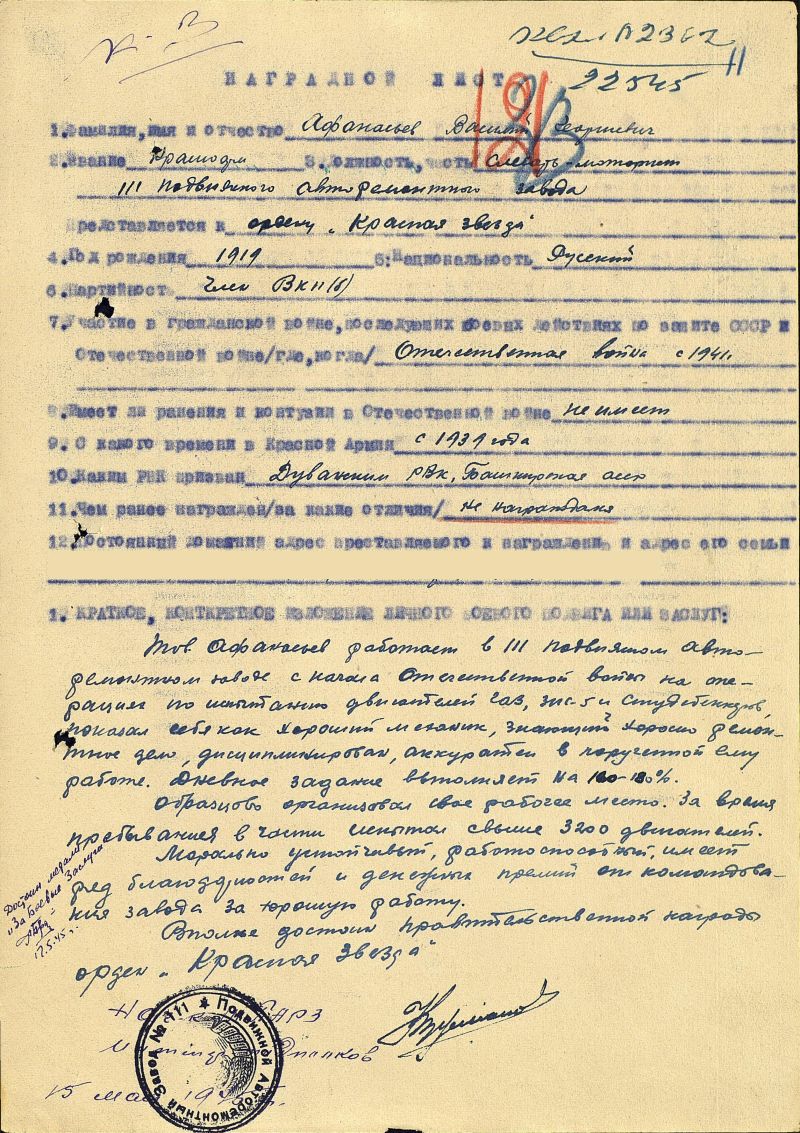 22545
НАГРАДНОЙ ЛИСТ
1. Фамилия, имя и отчество Афанасьев Василий Георгиевич
2. Звание Кр-ец 3. Должность, часть Слесарь-моторист
111 подвижного авторемонтного завода
Представляется к ордену „Красная звезда"
4. Год рождения 1919 5. Национальность Русский
6. Партийность Член ВКП(б)
7. Участие в гражданской войне, последующих боевых действиях по защите СССР и
Отечественной войне/где, когда/ Отечественная война с 1941г.
8. Имеет ли ранения и контузии в Отечественной войне не имеет
9. С какого времени в Красной Армии с 1939 года
10. Каким РВК призван Дуванским РВК, Башкирская асср
11. Чем ранее награжден/за какие отличия/ не награждался
12. Постоянный домашний адрес преставляемого к награждению и адрес его семьи
1. КРАТКОЕ, КОНТКРЕТНОЕ ИЗЛОЖЕНИЕ ЛИЧНОГО БОЕВОГО ПОДВИГА ИЛИ ЗАСЛУГ:
Тов Афанасьев работает в 111 подвижном авто-
ремонтном заводе с начала Отечественной войны на опе-
рациях по испытанию двигателей ГАЗ, зис-5 и Студебеккеров
показал себя как хороший механик, знающий хорошо ремон-
тное дело, дисциплинирован, аккуратен в порученной ему
работе. Дневное задание выполняет на 160-180%.
Образцово организовал свое рабочее место. За время
пребывания в части испытал свыше 3200 двигателей.
Морально устойчивый, работоспособный, имеет
ряд благодарностей и денежных премий от командова-
ния завода за хорошую работу.
Вполне достоин правительственной награды
орден „Красная Звезда"
Достоин медали
„За Боевые Заслуги"
17.5.45г.
15 мая
Подвижной Авторемонтный Завод № 111